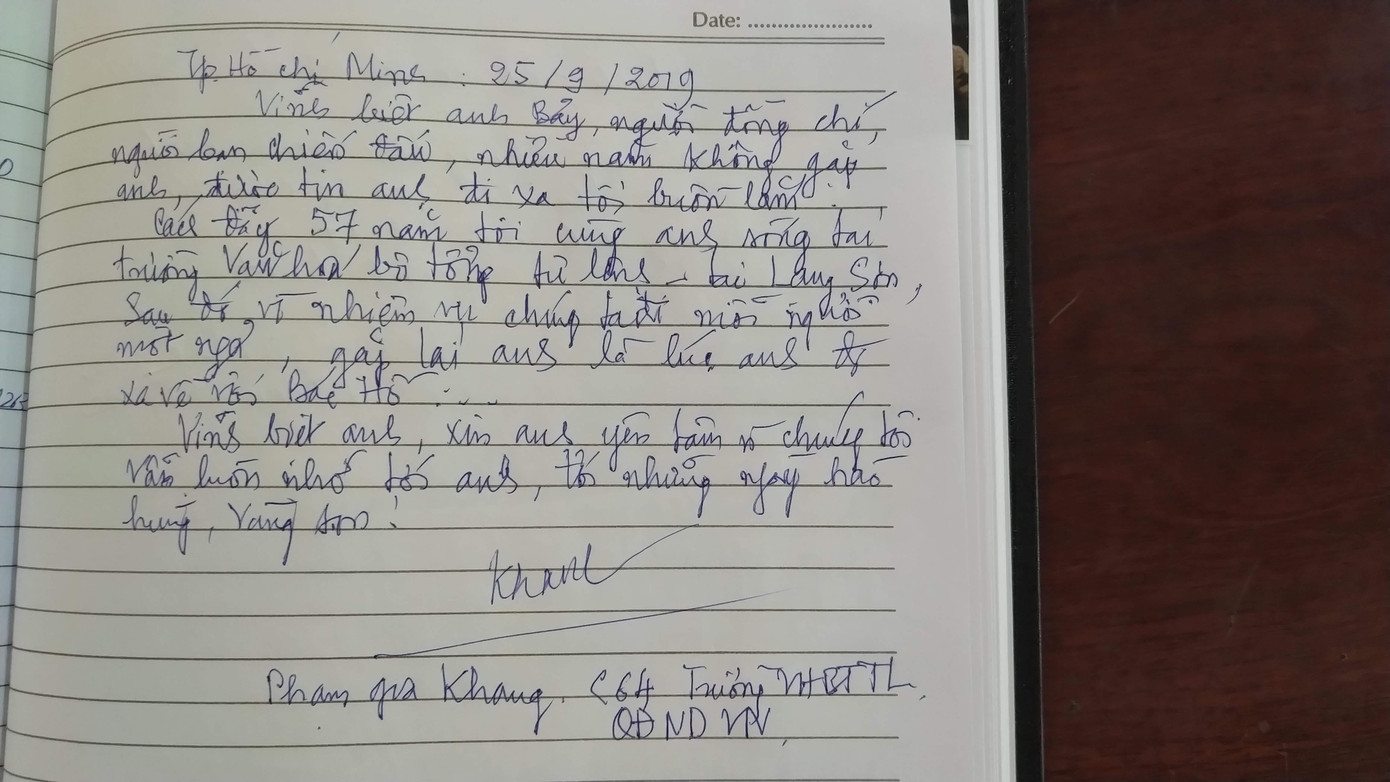 Date: ......................
Tp. Hồ chí Minh : 25/9/2019
Vĩnh biệt anh Bẩy, người đồng chí,
người bạn chiến đấu, nhiều năm không gặp
anh, được tin anh đi xa tôi buồn lắm.
Cách đây 57 năm tôi cùng anh sống tại
trường Văn hoá bộ tổng tư lệnh - tại Lạng Sơn,
Sau đó vì nhiệm vụ chúng ta đi mỗi người
một ngả, gặp lại anh là lúc anh đi
xa về với Bác Hồ ...
Vĩnh biệt anh, xin anh yên tâm vì chúng tôi
vẫn luôn nhớ tới anh, tới những ngày hào
hùng, vàng son!
Khang
Phạm gia Khang. C64 Trường VHBTTL
QĐNDVN